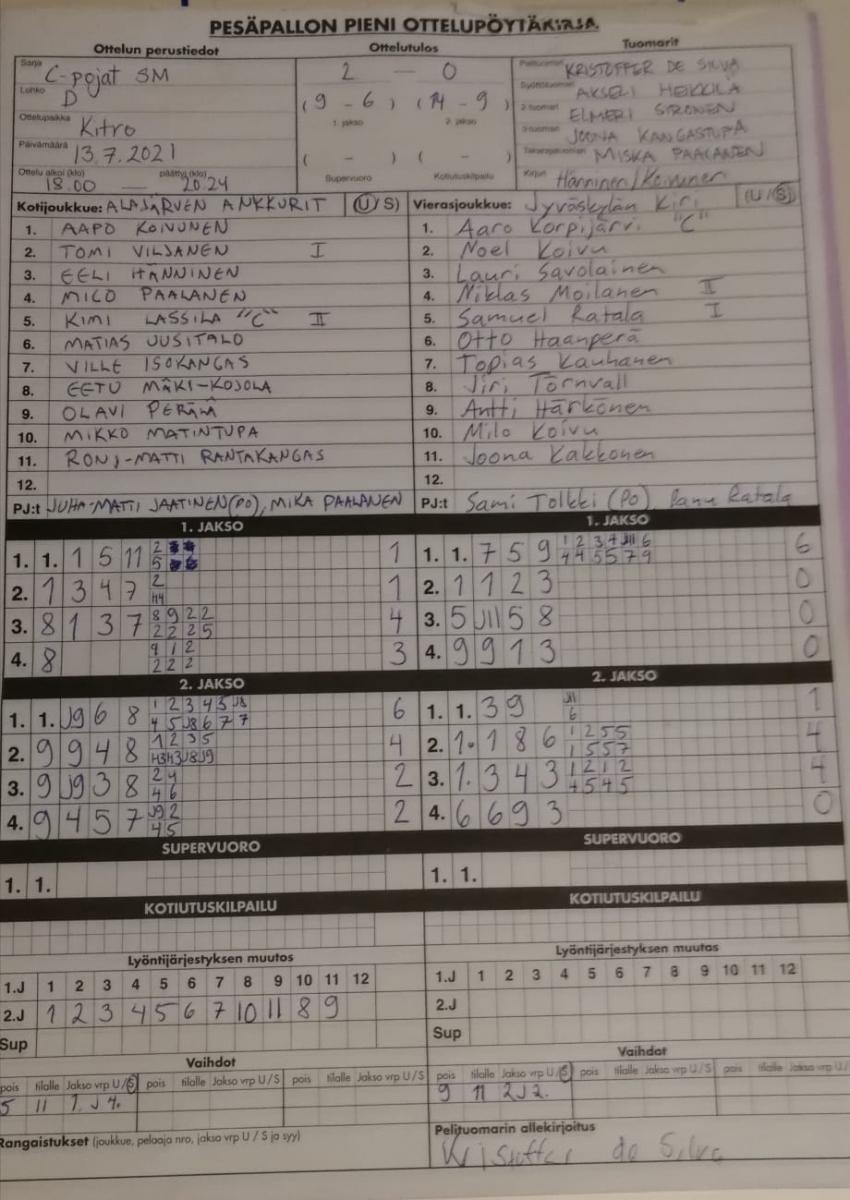 PESÄPALLON PIENI OTTELUPÖYTÄKIRJA
Ottelun perustiedot
Ottelutulos
Tuomarit
Sarja C-pojat SM
Lohko D
Ottelupaikka Kitro
Päivämäärä 13.7.2021
Ottelu alkoi (klo) 18.00 — päättyi (klo) 20.24
2 — 0
(9 - 6) (14 - 9)
1. jakso 2. jakso
( - ) ( - )
Supervuoro Kotiutuskilpailu
Pelituomari KRISTOFFER DE SILVA
Syöttötuomari AKSELI HEIKKILÄ
2-tuomari ELMERI SIRONEN
3-tuomari JOONA KANGASTUPA
Takarajatuomari MISKA PAALANEN
Kirjuri Hänninen/Koivunen
Kotijoukkue: ALAJÄRVEN ANKKURIT (U/S)
1. AAPO KOIVUNEN
2. TOMI VILJANEN I
3. EELI HÄNNINEN
4. MILO PAALANEN
5. KIMI LASSILA "C" II
6. MATIAS UUSITALO
7. VILLE ISOKANGAS
8. EETU MÄKI-KOJOLA
9. OLAVI PERÄLÄ
10. MIKKO MATINTUPA
11. RONI-MATTI RANTAKANGAS
12.
PJ:t JUHA-MATTI JAATINEN (PO), MIKA PAALANEN
Vierasjoukkue: Jyväskylän Kiri (U/S)
1. Aaro Korpijärvi "C"
2. Noel Koivu
3. Lauri Savolainen
4. Niklas Moilanen II
5. Samuel Ratala I
6. Otto Haanperä
7. Topias Kauhanen
8. Jiri Törnvall
9. Antti Härkönen
10. Milo Koivu
11. Joona Kakkonen
12.
PJ:t Sami Tolkki (PO), Panu Ratala
1. JAKSO
1. 1. 1 5 11 2 5 1
2. 1 3 4 7 2 1
3. 8 1 3 7 8 9 2 2 2 2 2 5 4
4. 8 9 1 2 2 2 2 3
1. JAKSO
1. 1. 7 5 9 1 2 3 4 J11 6 4 4 5 5 7 9 6
2. 1 1 2 3 0
3. 5 J11 5 8 0
4. 9 9 1 3 0
2. JAKSO
1. 1. J9 6 8 1 2 3 4 5 J8 4 5 J8 6 7 7 6
2. 9 9 4 8 1 2 3 5 4
3. 9 J9 3 8 2 4 4 6 2
4. 9 4 5 7 J9 2 4 5 2
2. JAKSO
1. 1. 3 9 J11 6 1
2. 1. 1 8 6 1 2 5 5 1 5 5 7 4
3. 1. 3 4 3 1 2 1 2 4 5 4 5 4
4. 6 6 9 3 0
SUPERVUORO
1. 1.
SUPERVUORO
1. 1.
KOTIUTUSKILPAILU
KOTIUTUSKILPAILU
Lyöntijärjestyksen muutos
1.J 1 2 3 4 5 6 7 8 9 10 11 12
2.J 1 2 3 4 5 6 7 10 11 8 9
Sup
Lyöntijärjestyksen muutos
1.J 1 2 3 4 5 6 7 8 9 10 11 12
2.J
Sup
Vaihdot
pois tilalle Jakso vrp U/S pois tilalle Jakso vrp U/S pois tilalle Jakso vrp U/S
5 11 1. J 4.
Vaihdot
pois tilalle Jakso vrp U/S pois tilalle Jakso vrp U/S pois tilalle Jakso vrp U/S
9 11 2J 2.
Rangaistukset (joukkue, pelaaja nro, jakso vrp U / S ja syy)
Pelituomarin allekirjoitus
Kristoffer de Silva